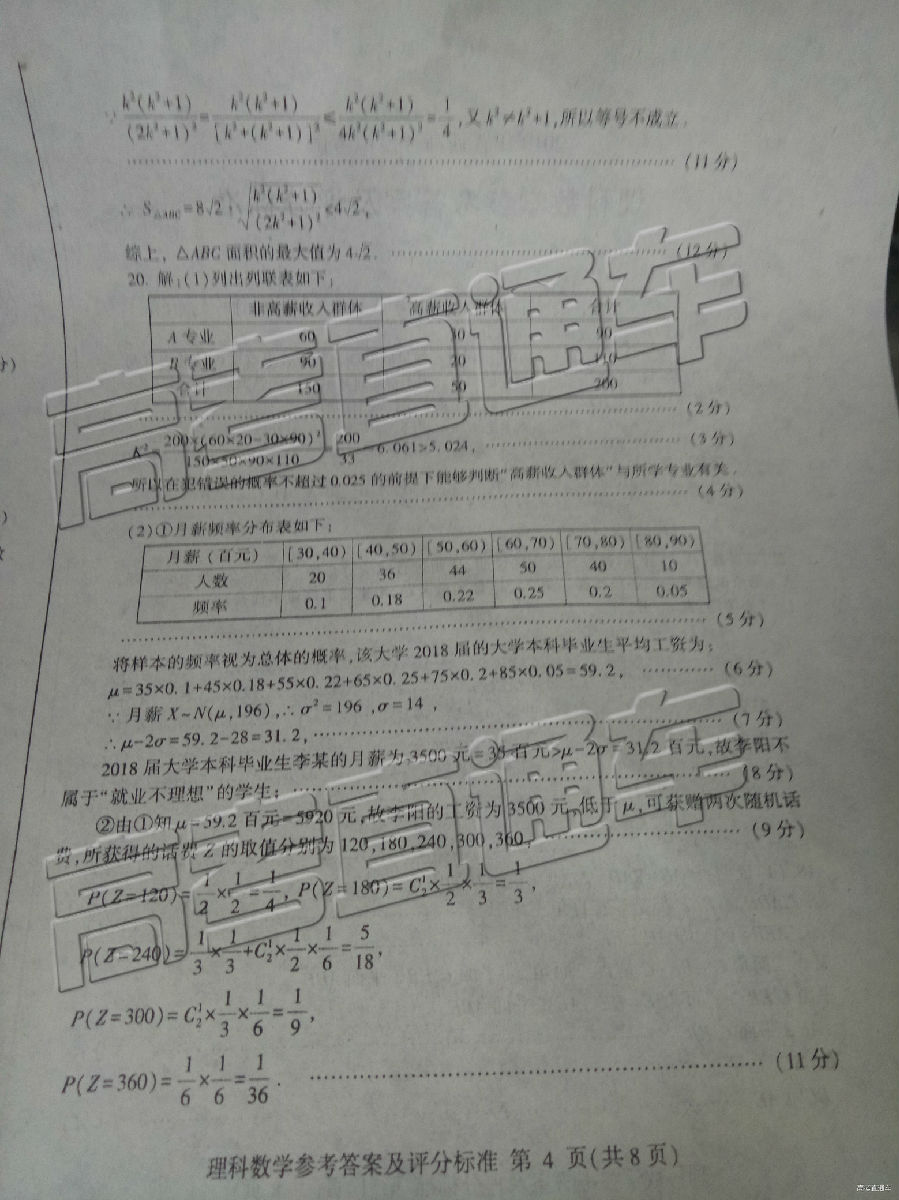 ∵ k²(k²+1)/(2k²+1)² = k²(k²+1)/[k²+(k²+1)]² ≤ k²(k²+1)/4k²(k²+1) = 1/4, 又 k²≠k²+1, 所以等号不成立.
(11分)
∴ S△ABC=8√2·√(k²(k²+1)/(2k²+1)²) ≤4√2,
综上, △ABC 面积的最大值为 4√2. (12分)
20. 解:(1)列出列联表如下:
非高薪收入群体 高薪收入群体 合计
A 专业 60 30 90
B 专业 90 20 110
合计 150 50 200
(2分)
K²=200×(60×20-30×90)²/150×50×90×110=200/33≈6.061>5.024, (3分)
所以在犯错误的概率不超过 0.025 的前提下能够判断“高薪收入群体”与所学专业有关.
(4分)
(2)①月薪频率分布表如下:
月薪(百元) [30,40) [40,50) [50,60) [60,70) [70,80) [80,90)
人数 20 36 44 50 40 10
频率 0.1 0.18 0.22 0.25 0.2 0.05
(5分)
将样本的频率视为总体的概率,该大学 2018 届的大学本科毕业生平均工资为:
μ=35×0.1+45×0.18+55×0.22+65×0.25+75×0.2+85×0.05=59.2, (6分)
∵ 月薪 X~N(μ,196),∴ σ²=196 ,σ=14 ,
∴ μ-2σ=59.2-28=31.2, (7分)
2018 届大学本科毕业生李某的月薪为 3500 元=35 百元>μ-2σ=31.2 百元,故李阳不
属于“就业不理想”的学生; (8分)
②由①知 μ=59.2 百元=5920 元,故李阳的工资为 3500 元,低于 μ,可获赠两次随机话
费,所获得的话费 Z 的取值分别为 120,180,240,300,360, (9分)
P(Z=120)=1/2×1/2=1/4, P(Z=180)=C₂¹×1/2×1/3=1/3,
P(Z=240)=1/3×1/3+C₂¹×1/2×1/6=5/18,
P(Z=300)=C₂¹×1/3×1/6=1/9,
P(Z=360)=1/6×1/6=1/36. (11分)
理科数学参考答案及评分标准 第 4 页(共8页)
高考直通车
高考直通车
高考直通车